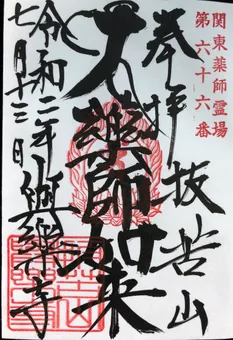 関東薬師霊場
第六十六番
奉拝 抜苦山
大藥師如来
令和二年 與樂寺
七月十三日